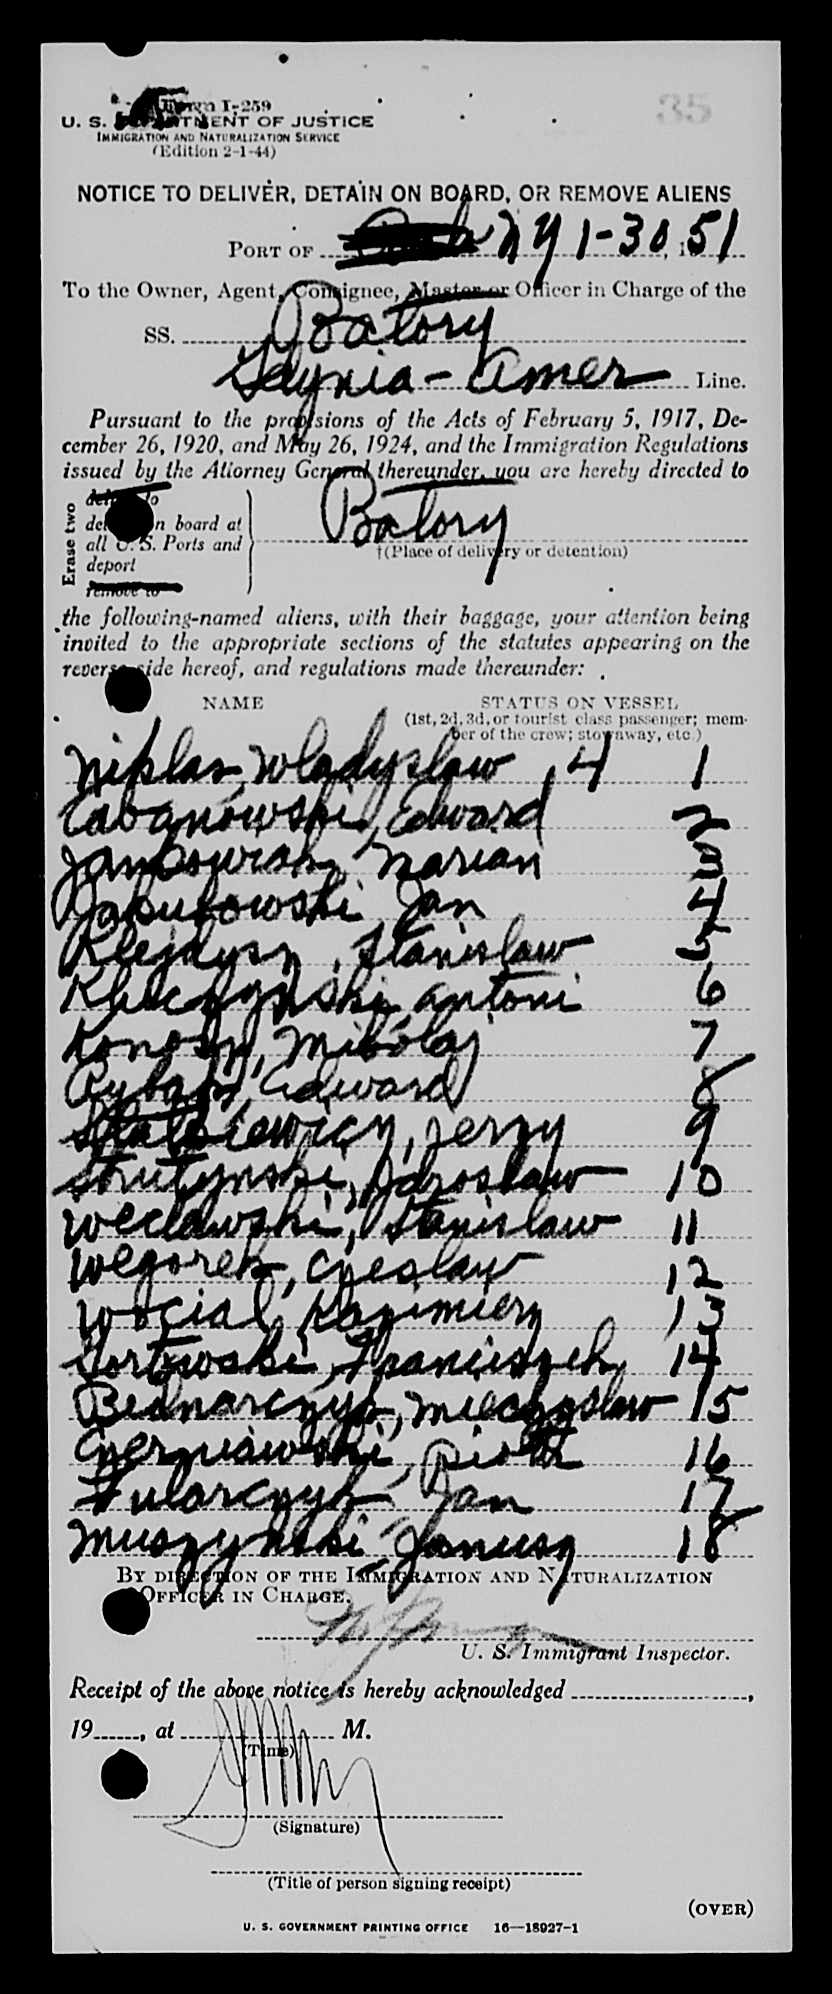 35
Form I-259
U. S. DEPARTMENT OF JUSTICE
IMMIGRATION AND NATURALIZATION SERVICE
(Edition 2-1-44)
NOTICE TO DELIVER, DETAIN ON BOARD, OR REMOVE ALIENS
PORT OF NY 1-30, 1951
To the Owner, Agent, Consignee, Master or Officer in Charge of the
SS. Batory
Gdynia - Amer Line.
Pursuant to the provisions of the Acts of February 5, 1917, De-
cember 26, 1920, and May 26, 1924, and the Immigration Regulations
issued by the Attorney General thereunder, you are hereby directed to
Erase two
deliver to
detain on board at
all U. S. Ports and
deport
remove to
Batory
†(Place of delivery or detention)
the following-named aliens, with their baggage, your attention being
invited to the appropriate sections of the statutes appearing on the
reverse side hereof, and regulations made thereunder:
NAME STATUS ON VESSEL
(1st, 2d, 3d, or tourist class passenger; mem-
ber of the crew; stowaway, etc.)
Niplas, Wladyslaw 4 1
Edward 2
Marian 3
Jakubowski Jan 4
Klejdysz, Stanislaw 5
Kleczynski, Antoni 6
Mikolaj 7
Rybak, Edward 8
Jerzy 9
Strutynski, Jaroslaw 10
Weclawski, Stanislaw 11
Wegorek, Czeslaw 12
Wocial, Kazimierz 13
Franciszek 14
Bednarczyk, Mieczyslaw 15
Czerniawski, Piotr 16
Fularczyk Jan 17
Muszynski Janusz 18
BY DIRECTION OF THE IMMIGRATION AND NATURALIZATION
OFFICER IN CHARGE.
U. S. Immigrant Inspector.
Receipt of the above notice is hereby acknowledged ,
19 , at M.
(Time)
(Signature)
(Title of person signing receipt)
(OVER)
U. S. GOVERNMENT PRINTING OFFICE 16—18927-1